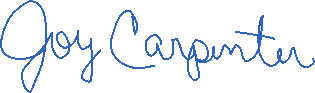 Joy Carpenter